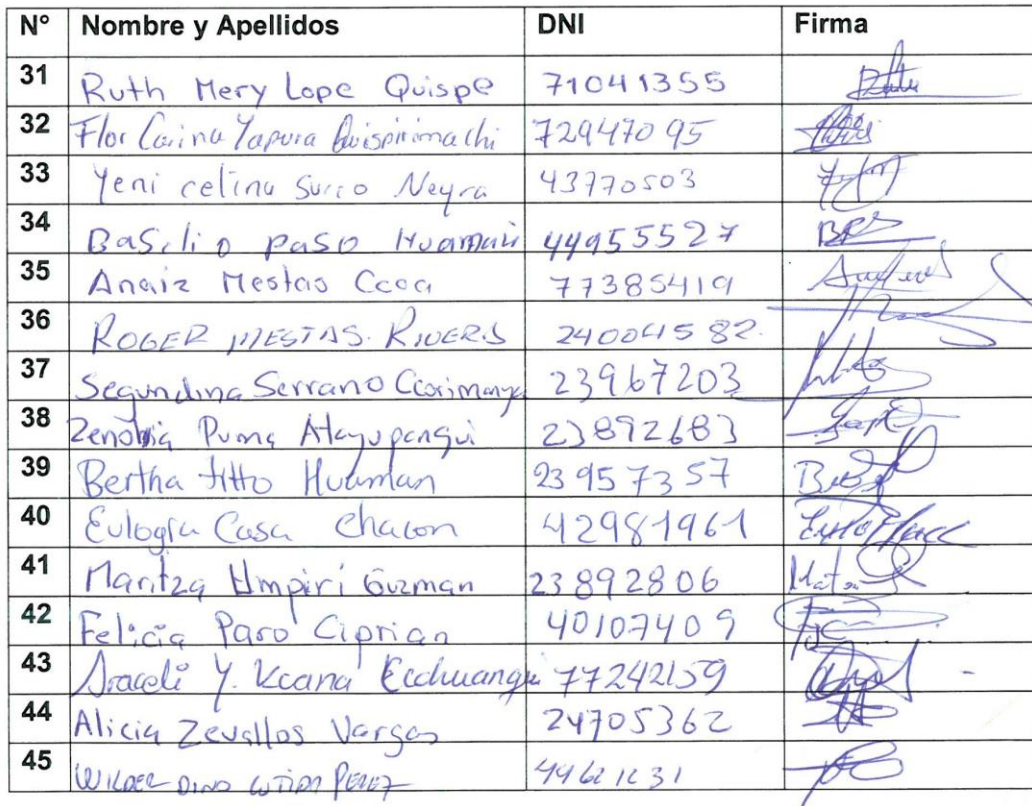 N° Nombre y Apellidos DNI Firma
31 Ruth Mery Lope Quispe 71041355
32 Flor Carina Yapura Quispirimachi 72947095
33 Yeni celina Surco Neyra 43770503
34 Basilio paso Huamani 44955527
35 Anaiz Mestas Ccoa 77385419
36 ROGER MESTAS. RIVERS 24004582.
37 Segundina Serrano Ccorimanya 23967203
38 Zenobia Puma Atayupanqui 23892683
39 Bertha titto Huaman 23957357
40 Eulogia Casa Chacon 42981961
41 Maritza Umpiri Guzman 23892806
42 Felicia Paro Ciprian 40107409
43 Araceli Y. Kcana Ccchuanqui 77242159
44 Alicia Zevallos Vargas 24705362
45 WILBER DINO PEREZ